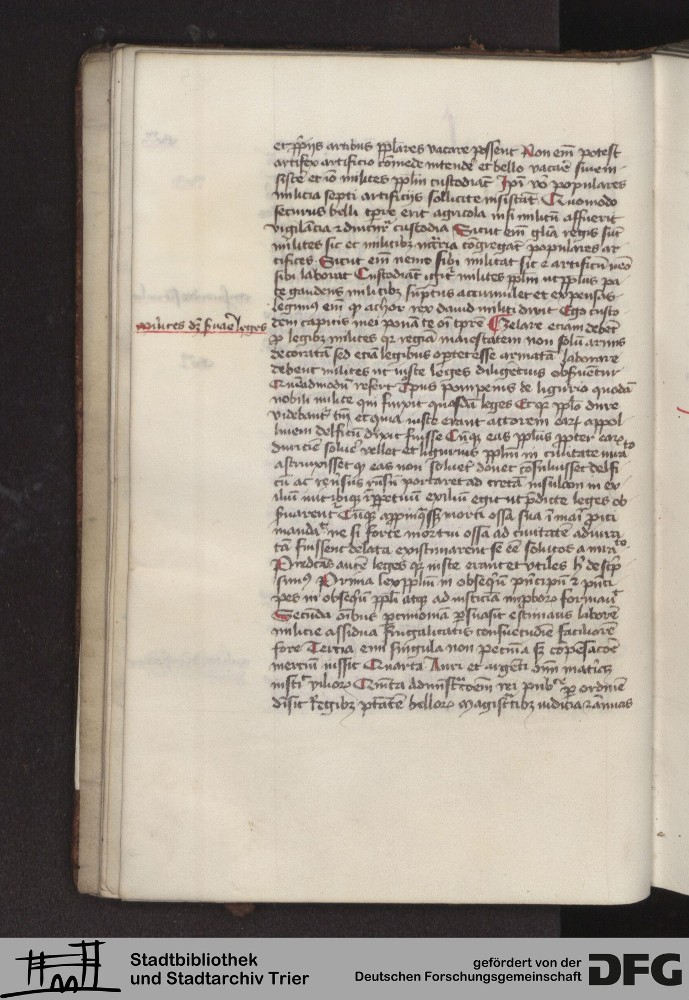 et ꝓprijs artibus pplares vacare possent Non em potest
artifex artificio comede intende et bello vacare sine
et io milites pplm custodiat Ipi vo populares
milicia septi artificijs sollicite insistat Quomodo
securus belli tpre erit agricola nisi militu affuerit
vigilancia custodia Sicut em glia regis sut
milites sic et militibz congregat populares ar
tifices Sicut em nemo sibi militat sic artificu nemo
sibi laborat Custodiat igit milites pplm ut pplus pa
te gaudens militibz suptus accumulet et expensas
legimus em achor rex dauid militi dixit Ego custo
dem capitis mei pona te oi tpre Zelare eciam debet
milites dz suare leges
ꝓ legibz milites qr regia maiestatem non solu armis
decorata sed ecia legibus oportet esse armata laborare
debent milites ut iuste leges diligecius obsuentur
Quemadmodu refert Tpus pompeius de ligurio quoda
nobili milite qui finxit quasda leges Et qr pplo dure
videbant tm et quia iuste erant actorem earum appol
linem delficu dixit fuisse Cuqz eas pplus ꝓpter earum
duriciem soluere vellet et ligurius pplm in ciuitate iura
astrinxisset qz eas non soluet donec cosuluisset delfi
cu ac reusus portaret ad creta insulam in ex
iliu iuit ibiqz ꝑpetuu exiliu egit ut ꝓdicte leges ob
suarent Cuqz morti ossa sua i mari ꝓici
manda ne si forte mortui ossa ad ciuitate
ta fuissent delata existimarent se ee solutos a iura
Predcas autem leges qz iuste erant et vtiles h descp
simus Prima lex pplm in obsequiu principu et pnci
pes in obsequiu ppli atqz ad iusticia impborum formauit
Secunda oibus pcimoniam ꝑsuasit estimans labore
milicie assidua frugalitatis consuetudie faciliore
fore Tercia emi singula non pecunia sz copesacoe
merciu iussit Quarta Auri et argeti omm materia
viliorum Quinta administracoem rei publice ꝑ ordine
diuisit Regibz ptatem bellorum Magistratibz iudicia annuas
Stadtbibliothek
und Stadtarchiv Trier
gefördert von der
Deutschen Forschungsgemeinschaft
DFG